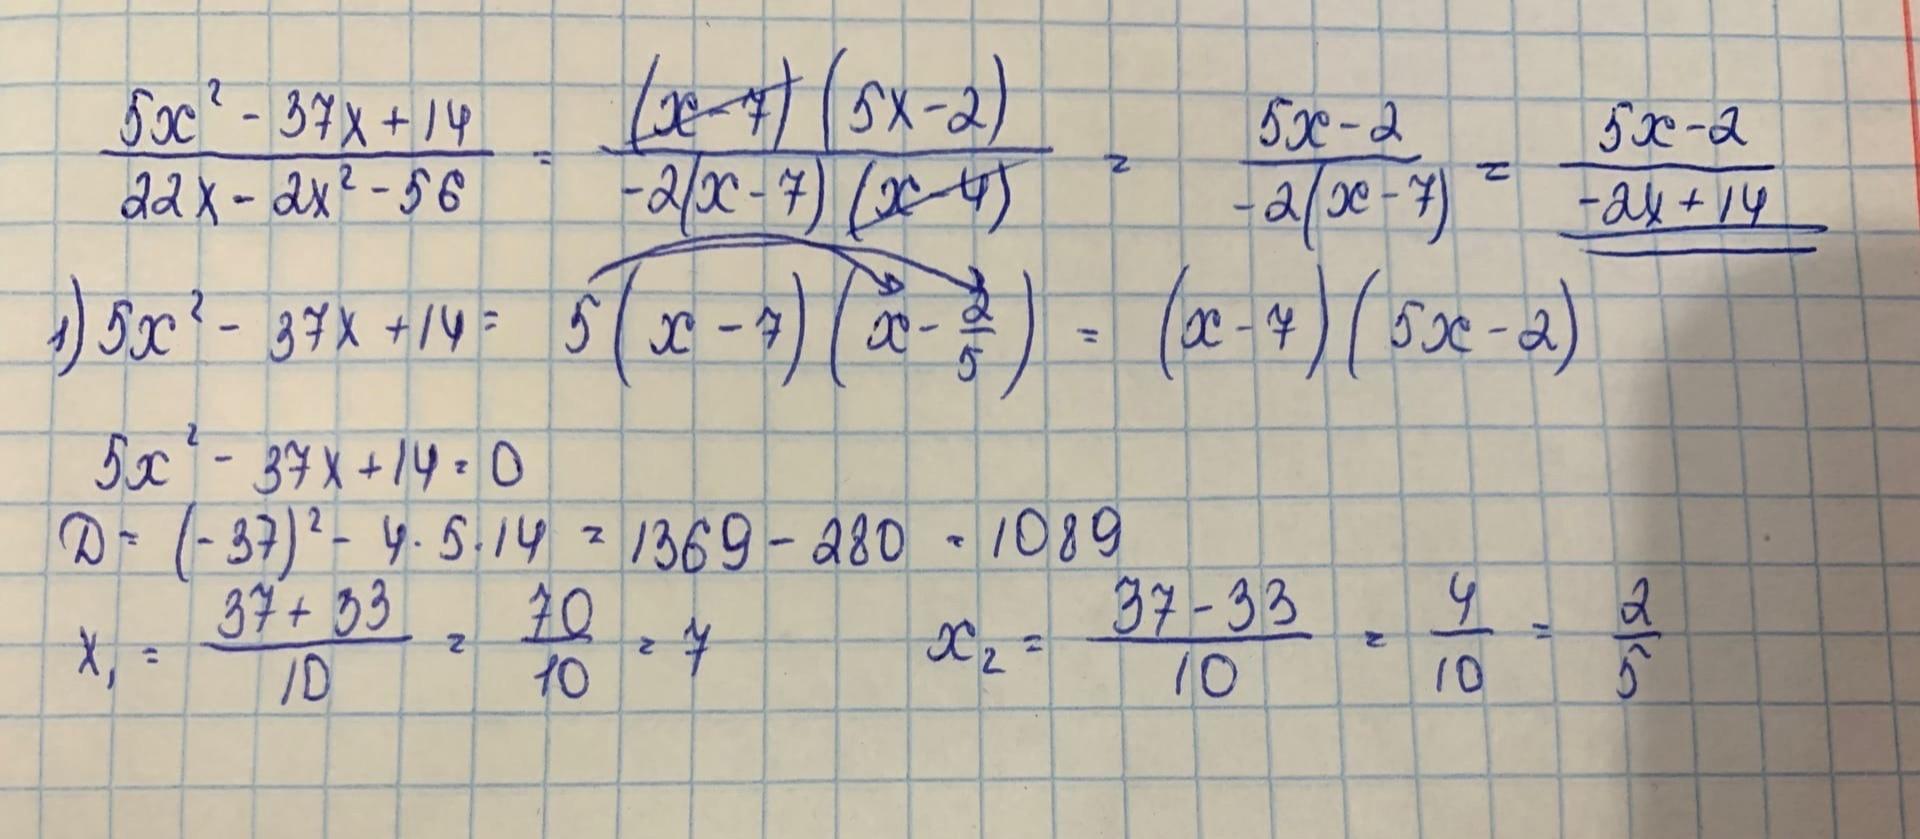 (5x² - 37x + 14)/(22x - 2x² - 56) = ((x-7)(5x-2))/(-2(x-7)(x-4)) = (5x-2)/(-2(x-7)) = (5x-2)/(-2x+14)
1) 5x² - 37x + 14 = 5(x - 7)(x - 2/5) = (x-7)(5x-2)
5x² - 37x + 14 = 0
D = (-37)² - 4·5·14 = 1369 - 280 = 1089
x₁ = (37+33)/10 = 70/10 = 7 x₂ = (37-33)/10 = 4/10 = 2/5